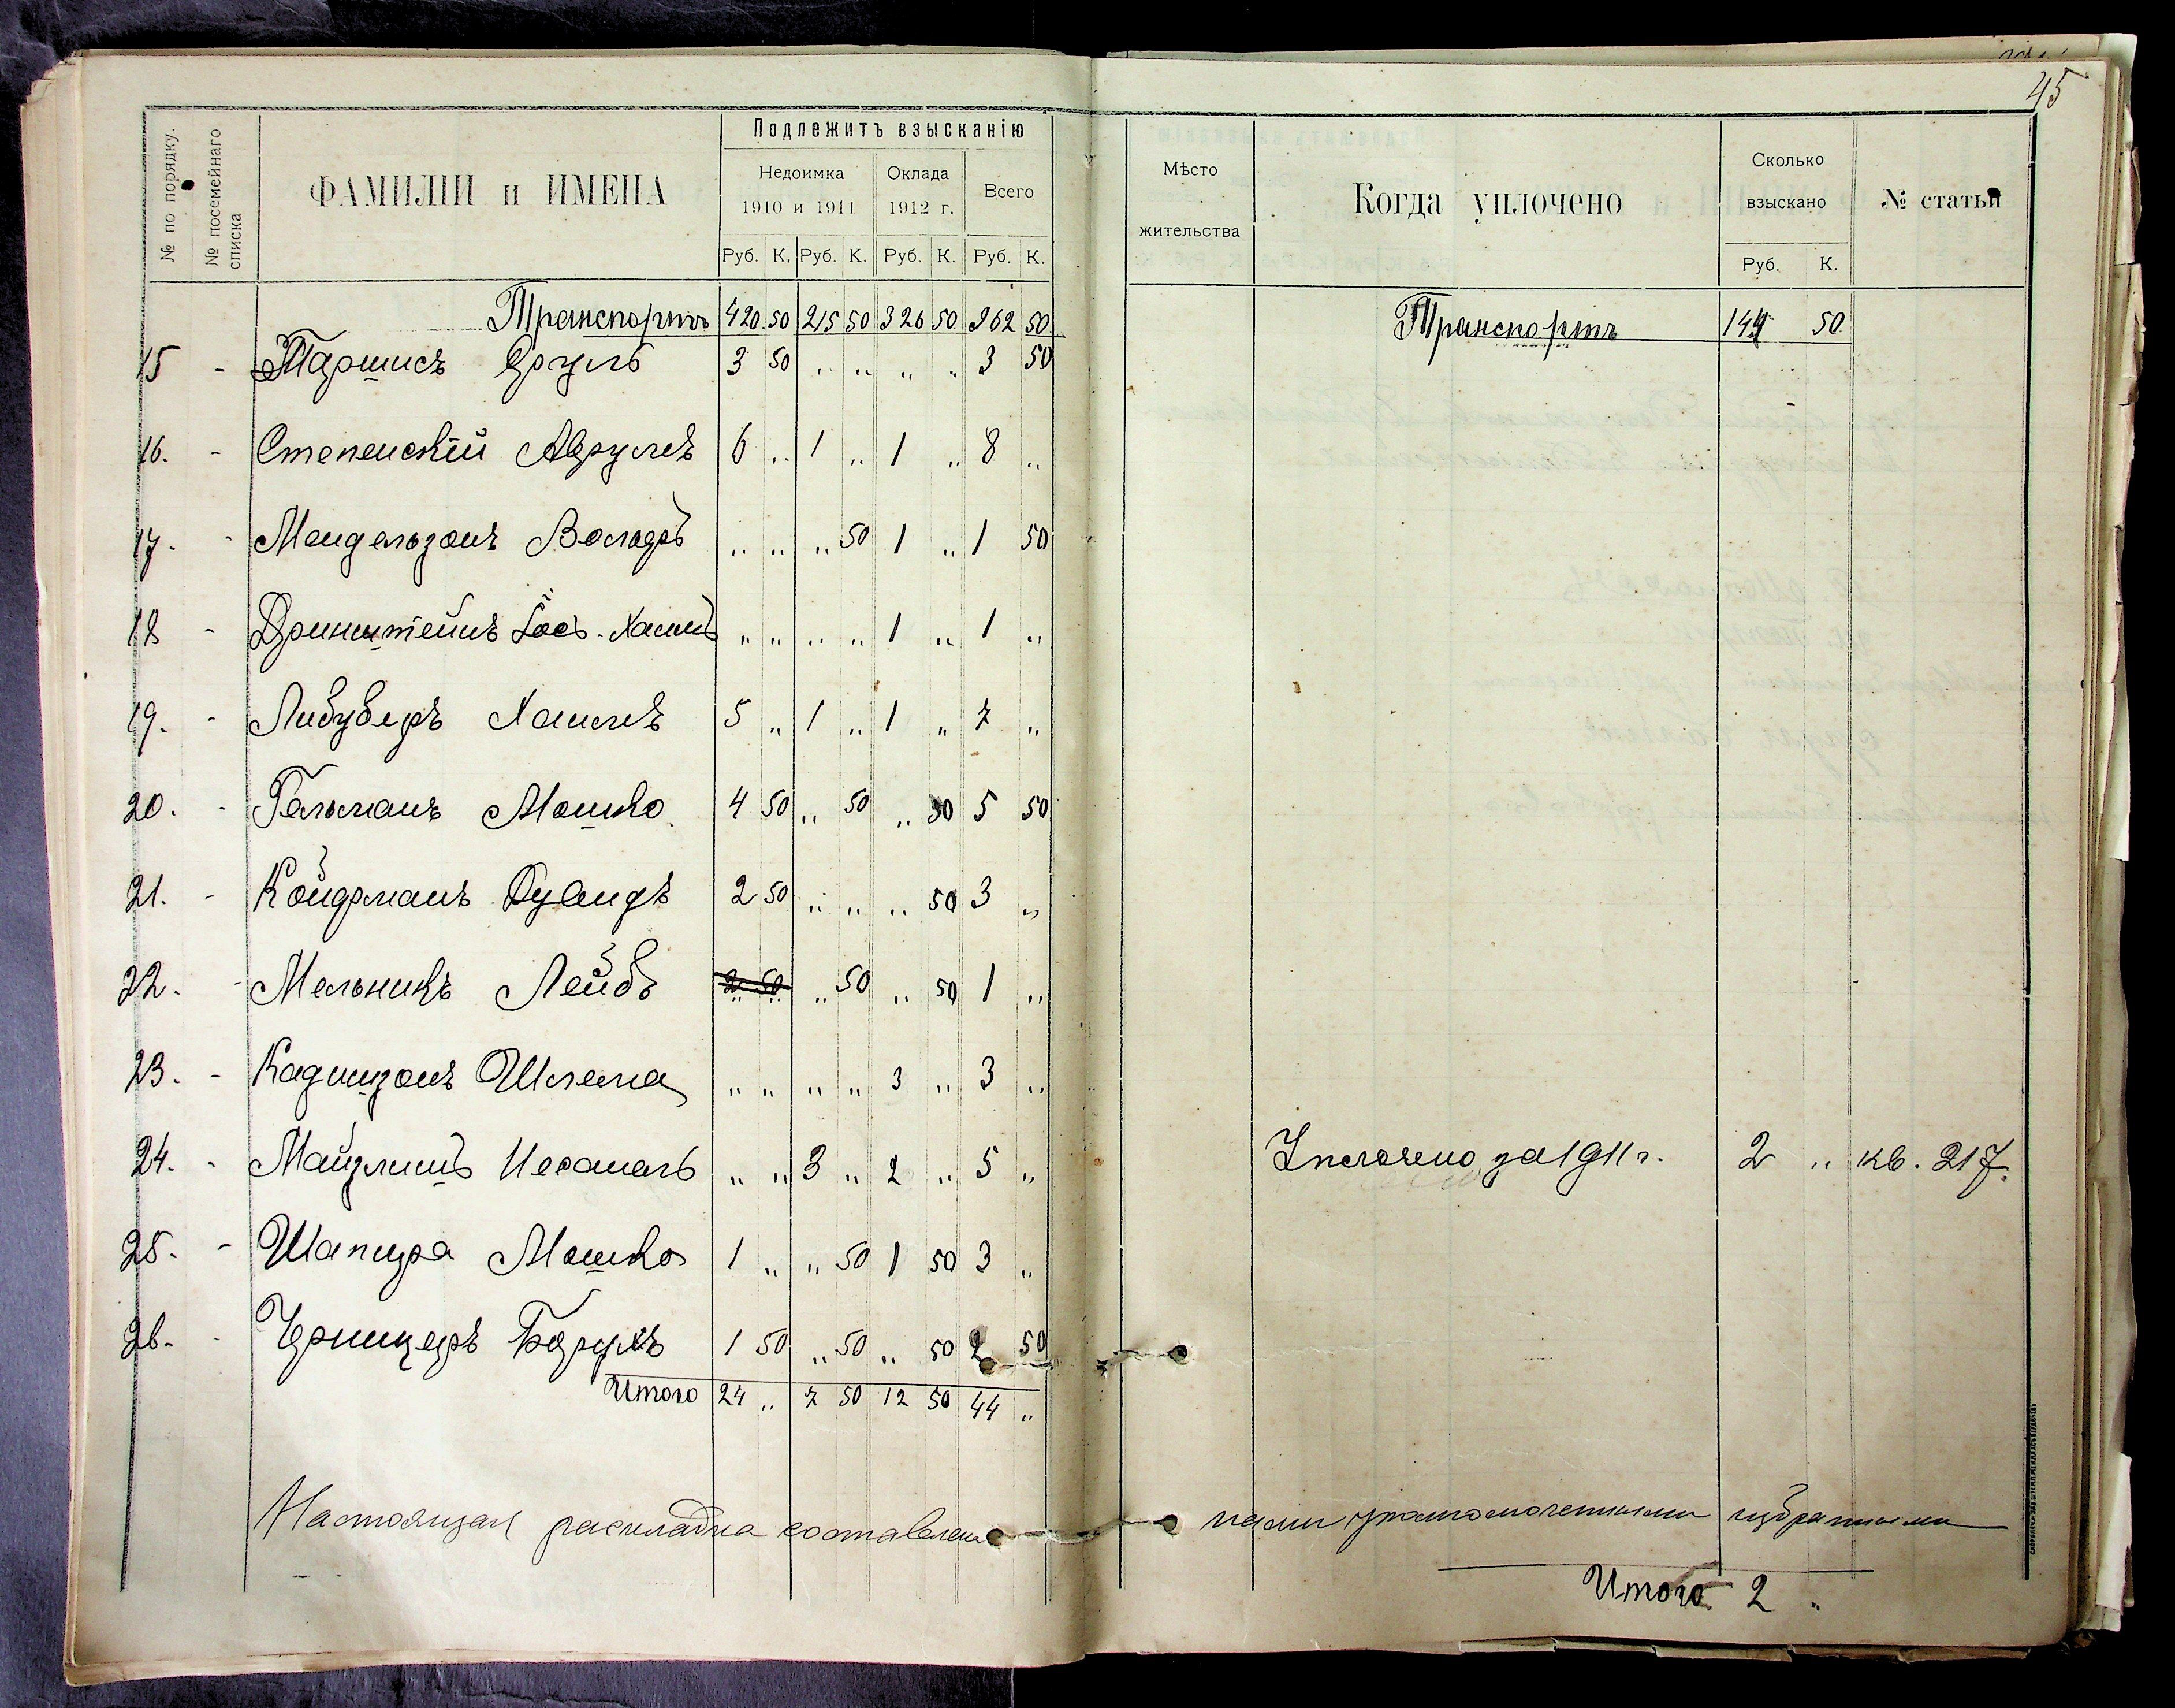 45
№ по порядку.
№ посемейнаго списка
ФАМИЛІИ и ИМЕНА
Подлежитъ взысканію
Недоимка
1910 и 1911
Оклада
1912 г.
Всего
Руб. К. Руб. К. Руб. К. Руб. К.
Мѣсто
жительства
Когда уплочено
Сколько
взыскано
Руб. К.
№ статьи
Транспортъ 420 50 215 50 326 50 962 50
Транспортъ 144 50
15 - Таршисъ Сруль 3 50 „ „ „ „ 3 50
16. - Степенскій Аврумъ 6 „ 1 „ 1 „ 8 „
17. - Мендельзонъ Вольфъ „ „ „ 50 1 „ 1 50
18 - Гринштейнъ Іось-Хаимъ „ „ „ „ 1 „ 1 „
19. - Хаимъ 5 „ 1 „ 1 „ 7 „
20. - Гельманъ Мошко 4 50 „ 50 „ 50 5 50
21. - Койфманъ Дувидъ 2 50 „ „ „ 50 3 „
22. - Мельникъ Лейбъ 2 50 „ 50 „ 50 1 „
23. - Шлема „ „ „ „ 3 „ 3 „
24. - Майзлишъ „ „ 3 „ 2 „ 5 „
Уплочено за 1911 г. 2 „ кв. 217.
25. - Шапира Мошко 1 „ „ 50 1 50 3 „
26. - Борухъ 1 50 „ 50 „ 50 2 50
Итого 24 „ 7 50 12 50 44 „
Настоящая раскладка составлена нами уполномоченными избранными
Итого 2 „